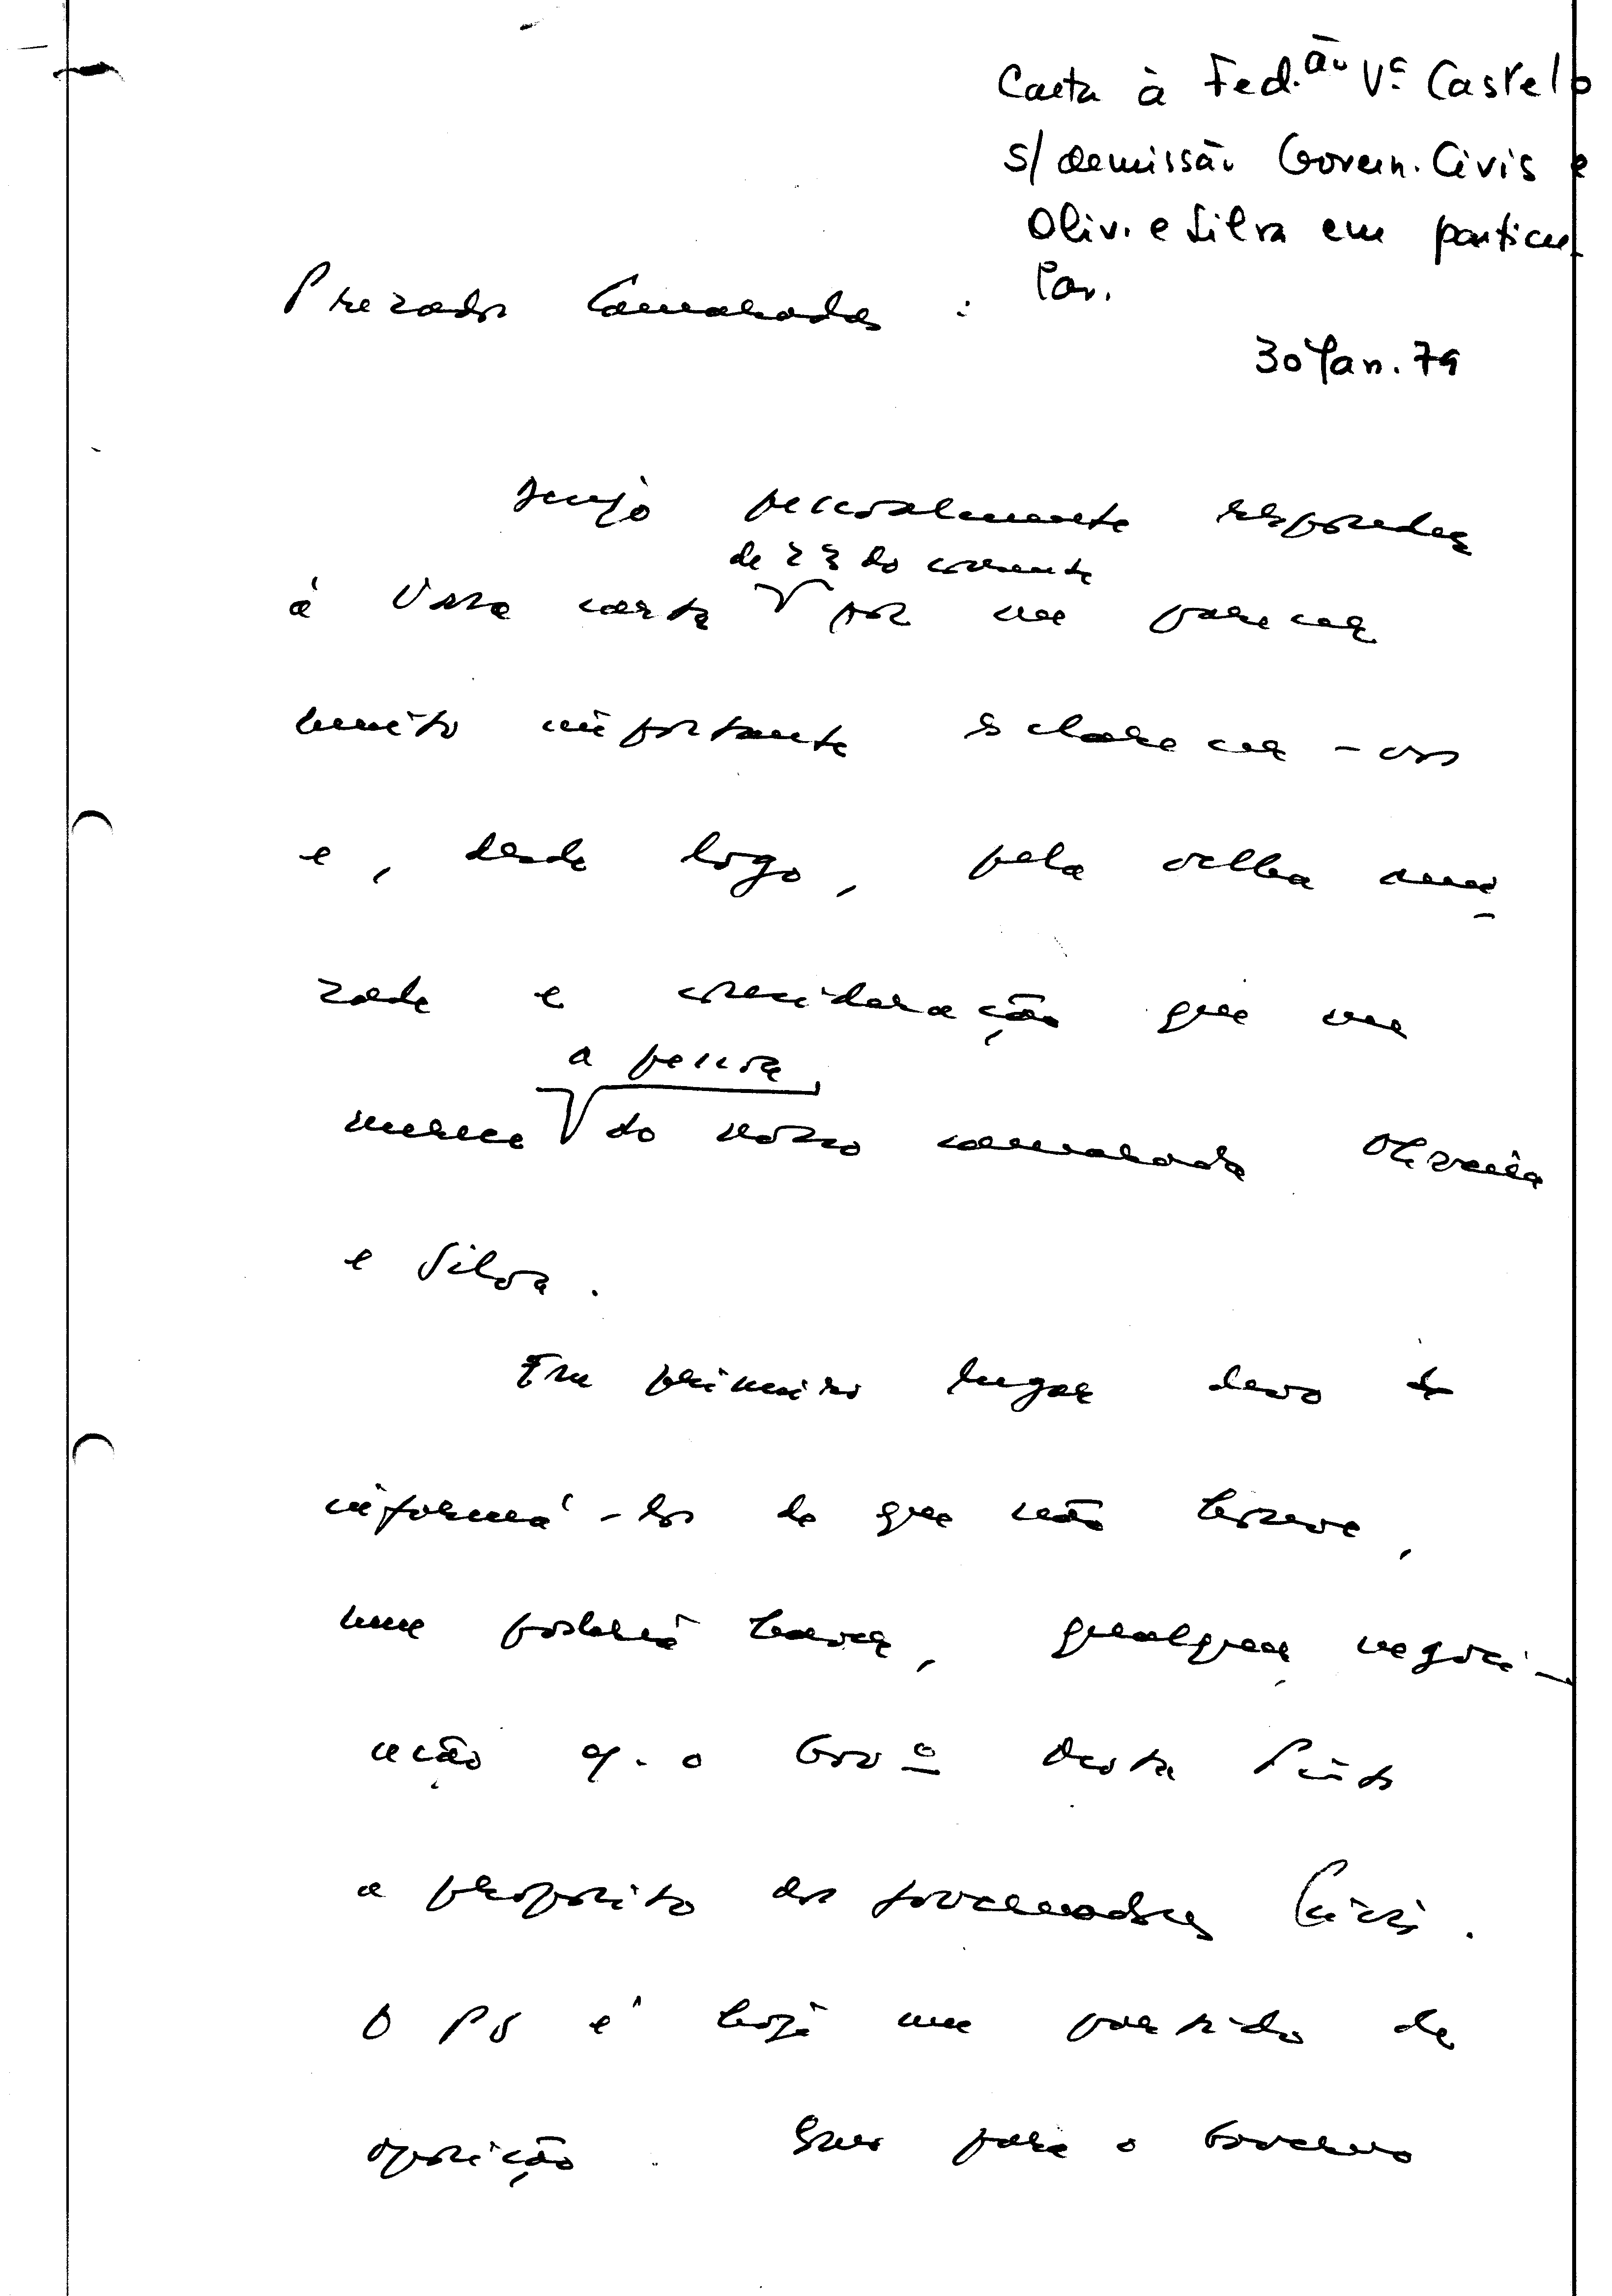 Carta à Fed.ão Vª Castelo
s/ demissão Govern. Civis e
Oliv. e Silva em particu-
lar.
30 Jan. 79
Prezados Camaradas :
Desejo pessoalmente responder
de 23 do corrente
à Vossa carta por me parecer
muito importante esclarecer-vos
e, desde logo, pela velha ami-
zade e consideração que me
a pessoa
merece do nosso camarada Oliveira
e Silva.
Em primeiro lugar devo
informá-los de que não houve,
nem poderia haver, qualquer negoci-
ação c. o Govº Mota Pinto
a propósito dos Governadores Civis.
O PS é hoje um partido de
oposição. para o Governo